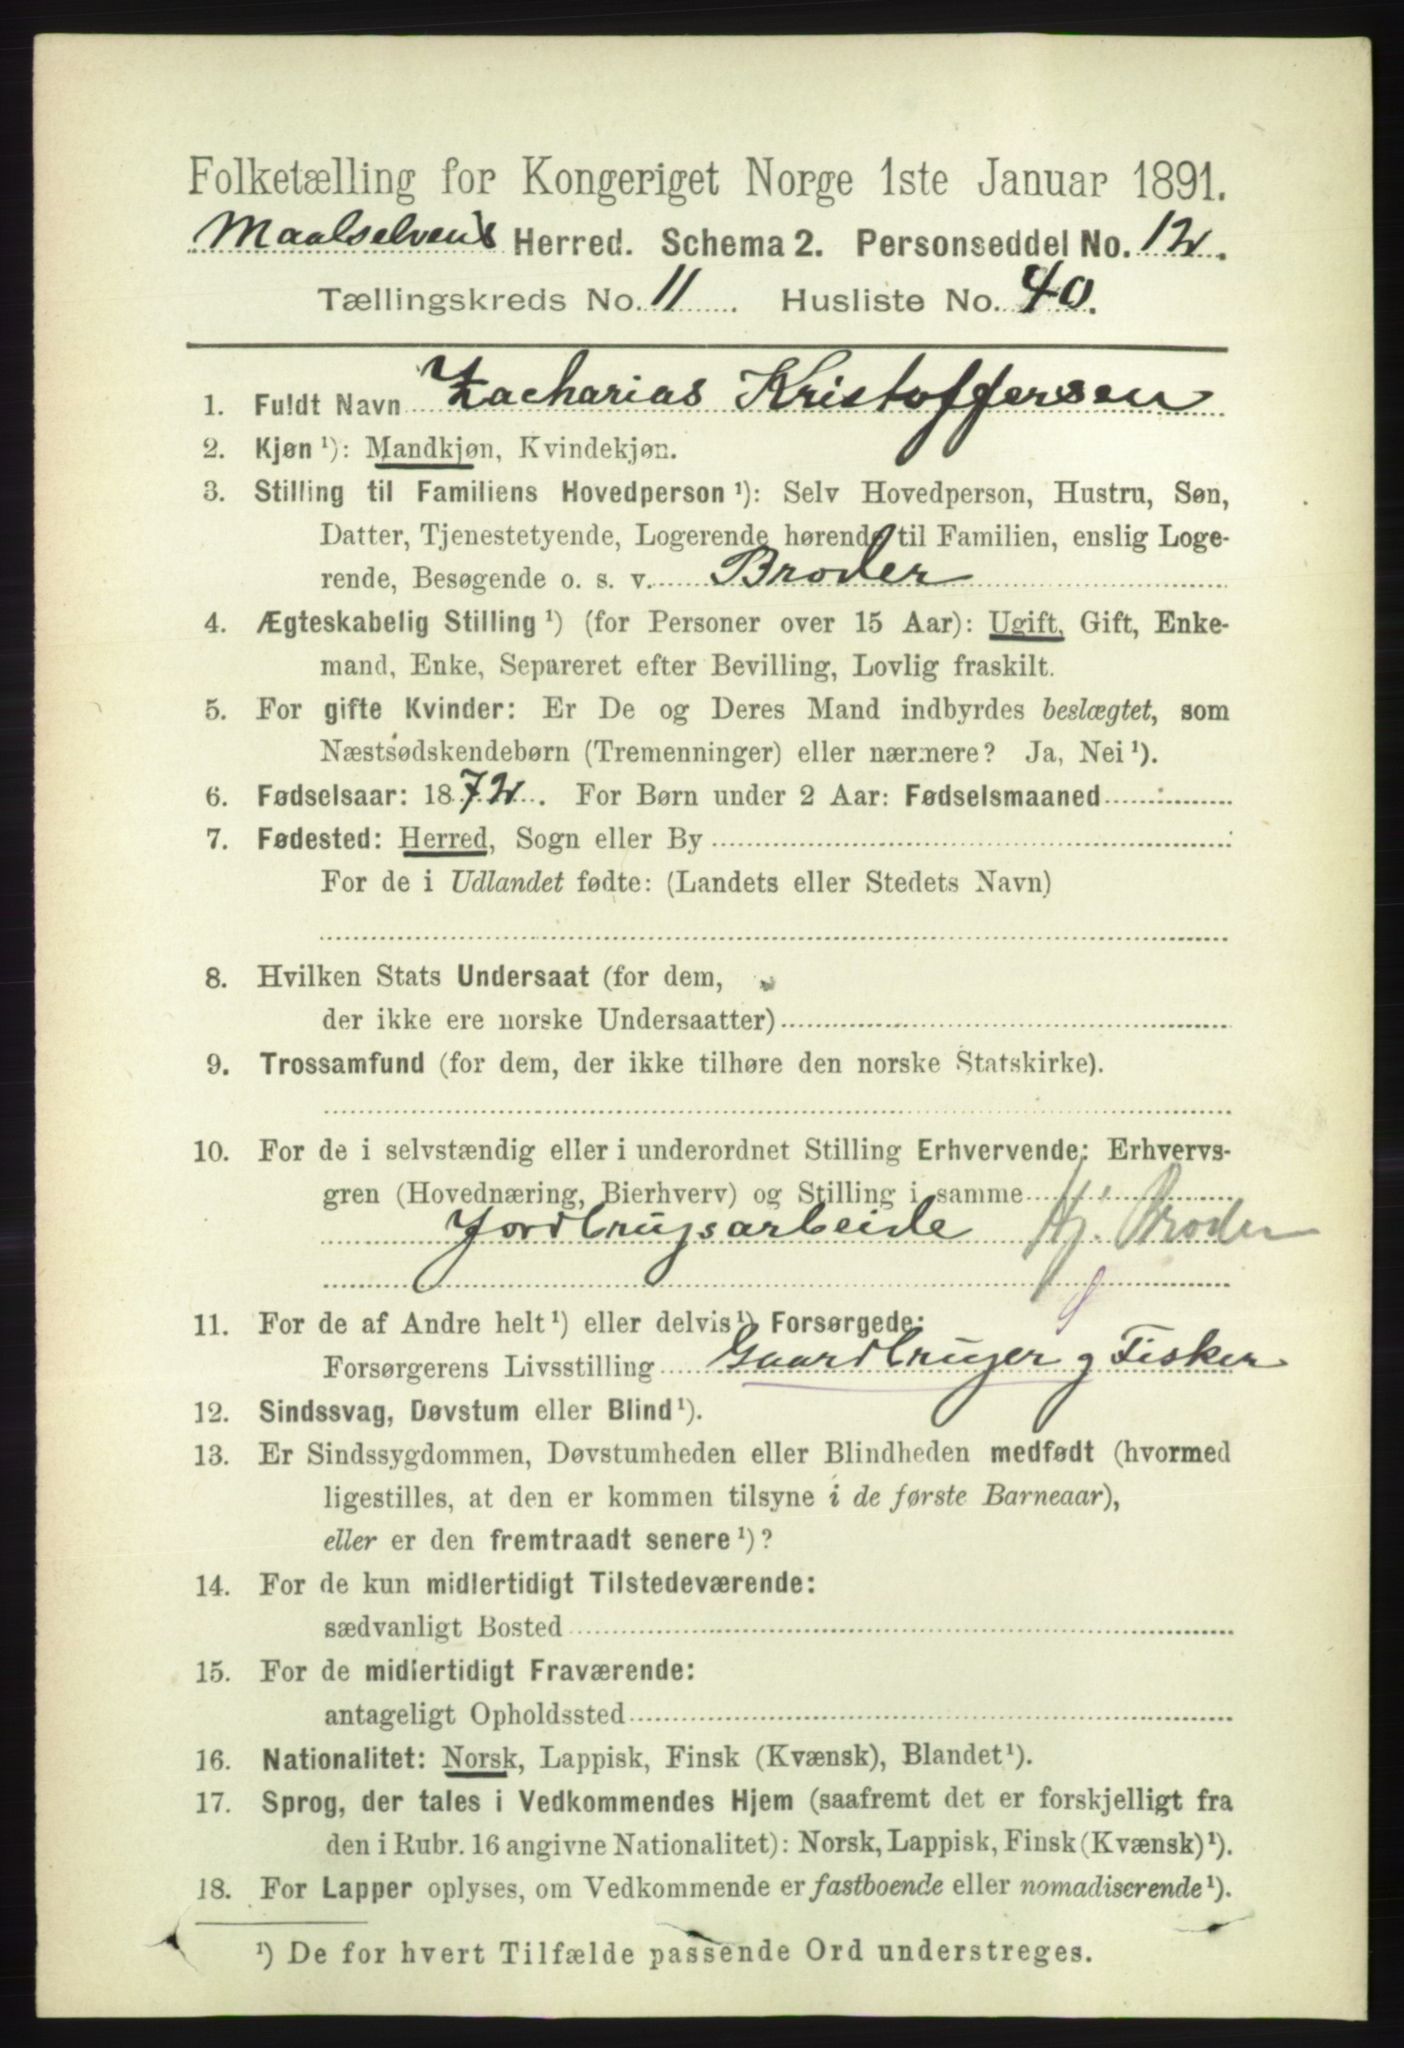 Folketælling for Kongeriget Norge 1ste Januar 1891.
Maalselvens Herred. Schema 2. Personseddel No. 12.
Tællingskreds No. 11. Husliste No. 40.
1. Fuldt Navn Zacharias Kristoffersen
2. Kjøn ¹): Mandkjøn, Kvindekjøn.
3. Stilling til Familiens Hovedperson ¹): Selv Hovedperson, Hustru, Søn,
Datter, Tjenestetyende, Logerende hørende til Familien, enslig Loge-
rende, Besøgende o. s. v. Broder
4. Ægteskabelig Stilling ¹) (for Personer over 15 Aar): Ugift, Gift, Enke-
mand, Enke, Separeret efter Bevilling, Lovlig fraskilt.
5. For gifte Kvinder: Er De og Deres Mand indbyrdes beslægtet, som
Næstsødskendebørn (Tremenninger) eller nærmere? Ja, Nei ¹).
6. Fødselsaar: 1872. For Børn under 2 Aar: Fødselsmaaned
7. Fødested: Herred, Sogn eller By
For de i Udlandet fødte: (Landets eller Stedets Navn)
8. Hvilken Stats Undersaat (for dem,
der ikke ere norske Undersaatter)
9. Trossamfund (for dem, der ikke tilhøre den norske Statskirke).
10. For de i selvstændig eller i underordnet Stilling Erhvervende: Erhvervs-
gren (Hovednæring, Bierhverv) og Stilling i samme
Jordbrugsarbeide Hj. Broder
11. For de af Andre helt ¹) eller delvis ¹) Forsørgede:
Forsørgerens Livsstilling Gaardbruger g Fisker
12. Sindssvag, Døvstum eller Blind ¹).
13. Er Sindssygdommen, Døvstumheden eller Blindheden medfødt (hvormed
ligestilles, at den er kommen tilsyne i de første Barneaar),
eller er den fremtraadt senere ¹)?
14. For de kun midlertidigt Tilstedeværende:
sædvanligt Bosted
15. For de midlertidigt Fraværende:
antageligt Opholdssted
16. Nationalitet: Norsk, Lappisk, Finsk (Kvænsk), Blandet ¹).
17. Sprog, der tales i Vedkommendes Hjem (saafremt det er forskjelligt fra
den i Rubr. 16 angivne Nationalitet): Norsk, Lappisk, Finsk (Kvænsk) ¹).
18. For Lapper oplyses, om Vedkommende er fastboende eller nomadiserende ¹).
¹) De for hvert Tilfælde passende Ord understreges.